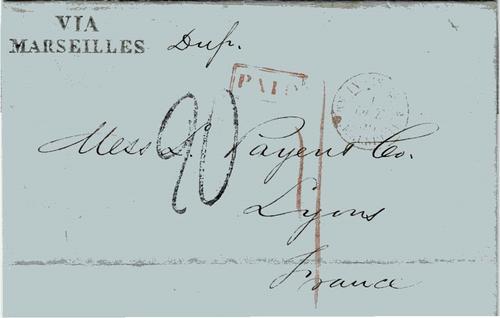 VIA
MARSEILLES
Dup.
PAID
20
Mess L. Payen & Co.
Lyons
France